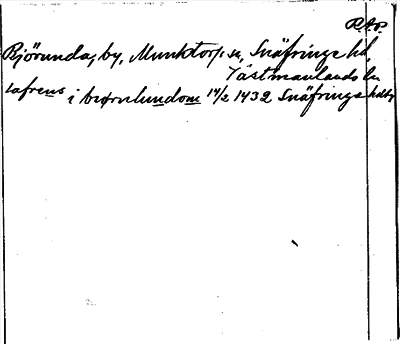 R.A.P.
Björunda, by, Munktorps sn, Snäfringe hd,
Västmanlands ln
Lafrens i biørnlundom 14/2 1432 Snäfringe hdbr